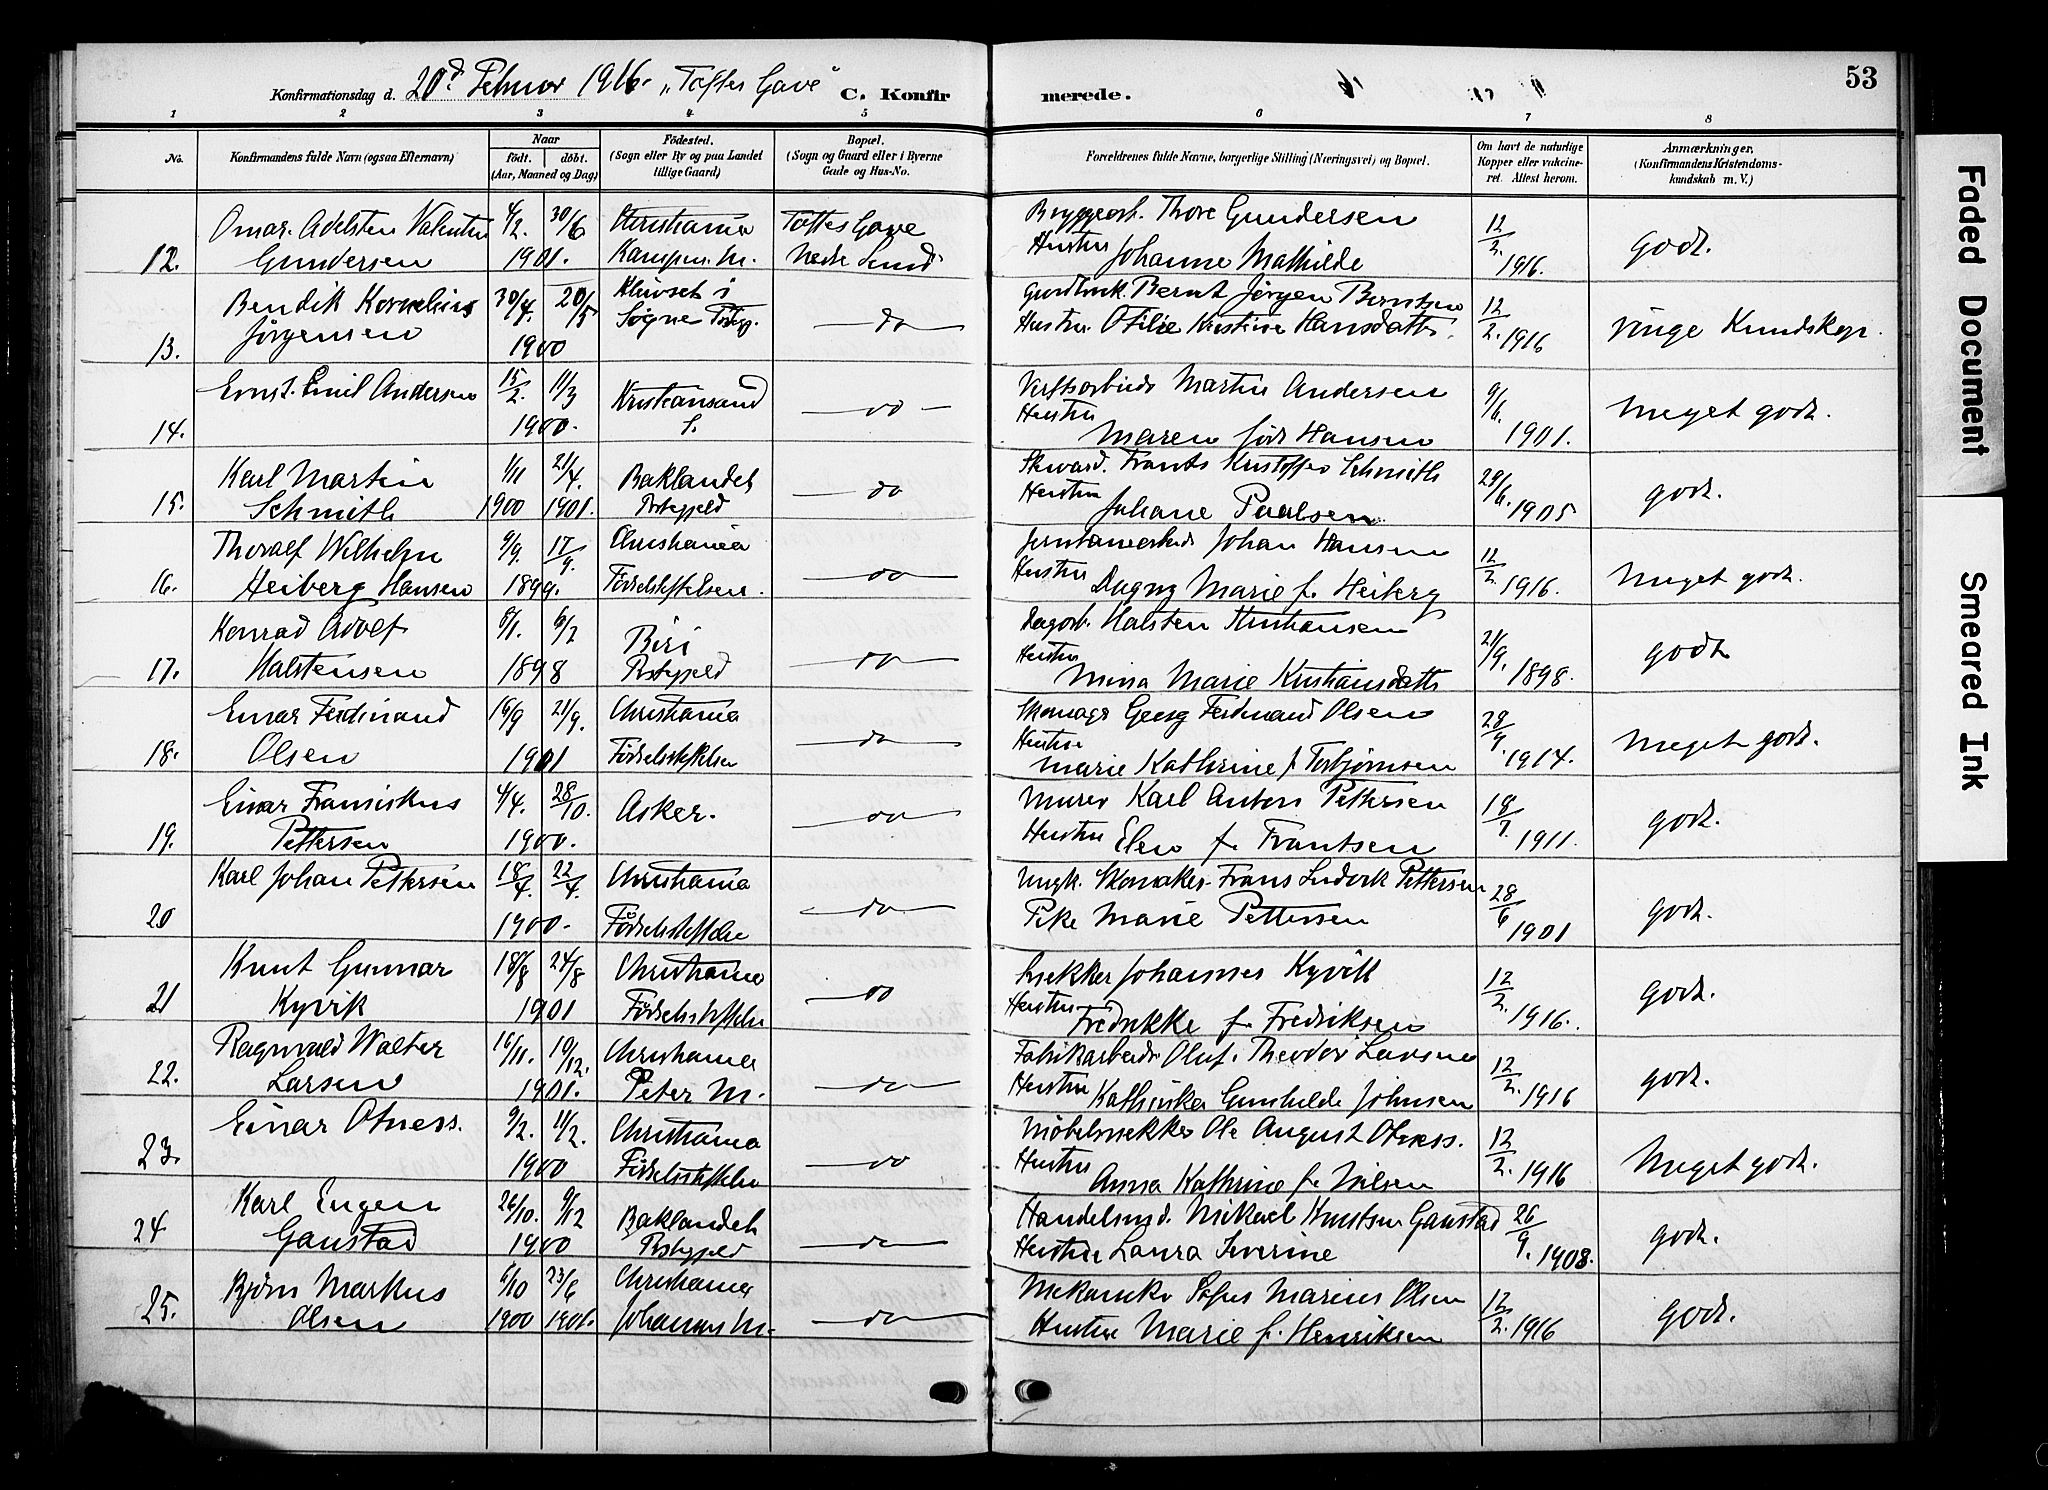 53
Konfirmationsdag d. 20d. Februar 1916. "Toftes Gave" C. Konfirmerede.
1 2 3 4 5 6 7 8
No. Konfirmandens fulde Navn (ogsaa Efternavn) Naar født. døbt. (Aar, Maaned og Dag) Fødested. (Sogn eller By og paa Landet tillige Gaard) Bopæl. (Sogn og Gaard eller i Byerne Gade og Hus-No. Forældrenes fulde Navne, borgerlige Stilling (Næringsvei) og Bopæl. Om havt de naturlige Kopper eller vakcineret. Attest herom. Anmærkninger, (Konfirmandens Kristendomskundskab m. V.)
Omar Adelsten Valentin 4/2. 30/6 Christiania Toftes Gave Bryggearb. Thore Gundersen 12/2.
12. Gundersen 1901. Kampen M. Nedre Sund Hustru Johanne Mathilde 1916. godt.
Bendik Kornelius 30/4. 20/5 i Gaardbruk. Bernt Jørgen Berntsen 12/2.
Jørgensen Søgne Prstgj. do Hustru Otilie Kristine Hansdatter. 1916 ringe Kundskap.
13. 1900
Ernst Emil Andersen 15/2. 11/3 Kristiansand do Verftsarbeider Martin Andersen 9/6. meget godt.
14. 1900. S. Hustru Maren født Hansen 1901.
Karl Martin 1/11 21/4. Baklandet do Steward. Frants Kristoffer Schmith 29/6.
15. Schmith 1900 1901. Prstegjeld Hustru Johane Paulsen. 1905 godt.
Thoralf Wilhelm 9/9. 17/9. Christiania do Johan Hansen 12/2.
16. Heiberg Hansen 1899. Fødselsstiftelsen. Hustru Dagny Marie f. Heiberg 1916. meget godt.
Konrad Adolf 8/1. 6/2 Biri do Dagarb. Halsten Kristiansen 21/9.
17. Halstensen 1898 Prstegjeld Hustru Mina Marie Kristiansdatter 1898. godt
Einar Ferdinand 16/9 21/9. Christiania do Skomager Georg Ferdinand Olsen 28/9.
18. Olsen 1901 Fødselsstiftelsen Hustru Marie Kathrine f. Torbjørnsen 1914. meget godt.
Einar Fransiskus 4/4. 28/10. Asker. do Murer Karl Anton Pettersen 18/7.
19. Pettersen 1900. Hustru Elen f. Frantsen 1911. godt.
Karl Johan Pettersen 18/4. 22/4. Christiania do Ungk. Skomaker Frans Ludvik Pettersen 28/6
20 1900. Fødselsstiftelse Pike Marie Pettersen 1901 godt.
Knut Gunnar 18/8 24/8 Christiania do Snekker Johannes Kyvik 12/2.
21 Kyvik 1901 Fødselsstiftelse Hustru Fredrikke f. Fredriksen 1916. godt.
Ragnvald Walter 16/11. 19/12. Christiania do Fabrikarbeider Oluf Theodor Larsen 12/2.
22. Larsen 1901. Peter M. Hustru Kathinka Gunhilde Johnsen 1916 godt.
Einar Otness. 9/2. 11/2. Christiania do Møbelsnekker Ole August Otness. 12/2.
23. 1900 Fødselsstiftelse Hustru Anna Kathrine f. Nilsen 1916 meget godt.
Karl Eugen 26/10. 9/12 Baklandet do Handelsmd. Mikael Knutsen Ganstad 26/9.
24 Ganstad 1900 Prstegjeld Hustru Laura Severine 1908. godt.
Bjørn Markus 6/10 23/6 Christiania do Mekaniker Sofus Marius Olsen 12/2.
25. Olsen 1900 1901. Johannes M. Hustru Marie f. Henriksen 1916 godt.
Faded Document
Smeared Ink